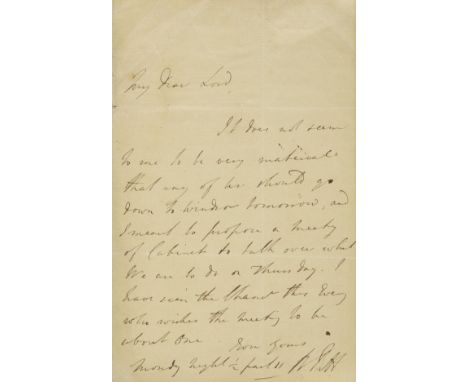 My Dear Lord,
It does not seem
to me to be very material
that any of us should go
down to Windsor tomorrow, and
I meant to propose a meetg
of Cabinet to talk over what
We are to do on Thursday. I
have seen the this Eveng
who wishes the meeting to be
about One
Yours
Monday night ½ past 11 W Pitt